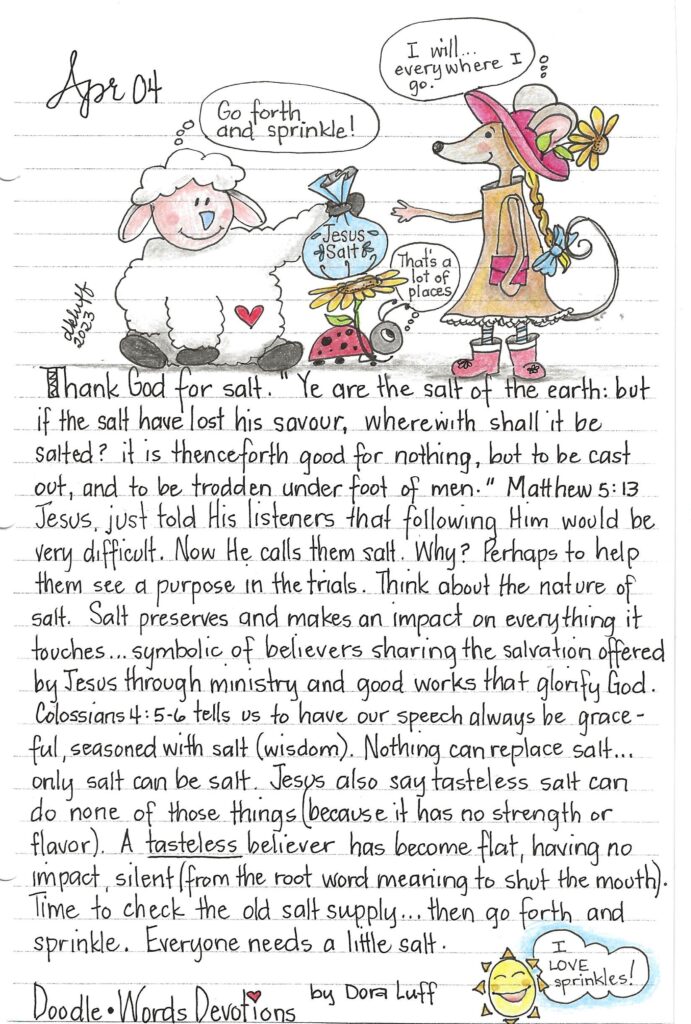 Apr 04
I will...
everywhere I
go.
Go forth
and sprinkle!
Jesus
Salt
That's a
lot of
places
dkluff
2023
Thank God for salt. " Ye are the salt of the earth: but
if the salt have lost his savour, wherewith shall it be
salted? it is thenceforth good for nothing, but to be cast
out, and to be trodden under foot of men." Matthew 5:13
Jesus, just told His listeners that following Him would be
very difficult. Now He calls them salt. Why? Perhaps to help
them see a purpose in the trials. Think about the nature of
salt. Salt preserves and makes an impact on everything it
touches... symbolic of believers sharing the salvation offered
by Jesus through ministry and good works that glorify God.
Colossians 4:5-6 tells us to have our speech always be grace-
ful, seasoned with salt (wisdom). Nothing can replace salt...
only salt can be salt. Jesus also say tasteless salt can
do none of those things (because it has no strength or
flavor). A tasteless believer has become flat, having no
impact, silent (from the root word meaning to shut the mouth).
Time to check the old salt supply... then go forth and
sprinkle. Everyone needs a little salt.
I
LOVE
sprinkles!
Doodle • Words Devotions by Dora Luff